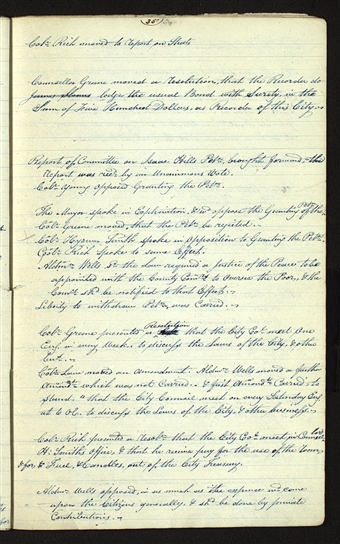 35
Colr. Rich moved to Report on Streets
Councellor Greene moved a resolution, that the Recorder do
lodge the usual Bond with Surety, in the
Sum of Five Hundred Dollars, as Recorder of this City.
Report of Committee on Isaac Hills Petn. brought forward, & the
Report was recd. by an Unanimous Vote.
Colr. Young opposed Granting the Petn.
The Mayor spoke in Explanation, & to oppose the Granting of the Petn.
Colr. Greene moved, that the Petn. be rejected.
Colr. Hyrum Smith spoke in opposition to Granting the Petn.
Colr. Rich spoke to same Effect.
Aldn. Wells sd. the Law required a Justice of the Peace to be
appointed with the County Comrs. to Oversee the Poor, & the
Comrs. shd. be notified to that Effect.
Liberty to withdraw Petn. was Carried.
Colr. Greene presented a Resolution that the City Col. meet One
Eveg. in every Week, to discuss the Laws of the City, & other
Colr. Law moved an Amendment. Aldn. Wells moved a further
Amendt. which was not Carried. & first Amendt. Carried, to
stand, "that the City Council meet on every Saturday Eveg.
at 6 O'c. to discuss the Laws of the City, & other business."
Colr. Rich presented a Resoln. that the City Col. meet in Councellor
H. Smiths Office, & that he receive pay for the use of the room,
& for Fuel, & Candles, out of the City Treasury.
Aldn. Wells opposed, in as much as the expence wd. come
upon the Citizens generally, & shd. be done by private
Contributions.